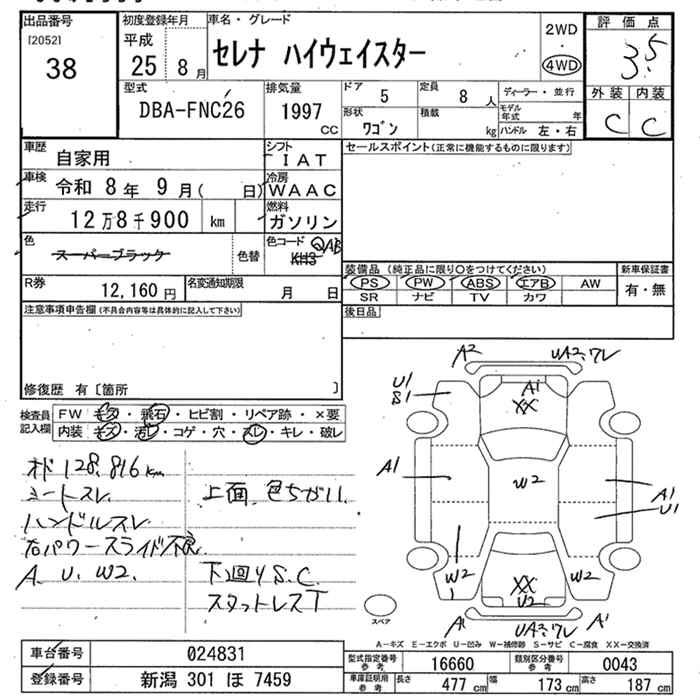 出品番号
[2052]
38
初度登録年月
平成
25 8 月
車名・グレード
セレナ ハイウェイスター
2WD
・
4WD
評価点
3.5
外装 内装
C C
型式
DBA-FNC26
排気量
1997
CC
ドア 5
定員 8 人
ディーラー・並行
形状 ワゴン
積載 kg
モデル年式 年
ハンドル 左・右
車歴 自家用
シフト IAT
セールスポイント(正常に機能するものに限ります)
車検 令和 8 年 9 月( 日)
冷房 WAAC
走行 12万8千900 km
燃料 ガソリン
色 スーパーブラック 色替
色コード KH3 QAB
装備品 (純正品に限り○をつけてください)
新車保証書
PS PW ABS エアB AW
有・無
SR ナビ TV カワ
R券 12,160 円
名変通知期限 月 日
後日品
注意事項申告欄(不具合内容等は具体的に記入して下さい)
修復歴 有〔箇所 〕
検査員記入欄
FW キズ・飛石・ヒビ割・リペア跡・×要
内装 キズ・汚レ・コゲ・穴・スレ・キレ・破レ
オド128,816km
シートスレ
ハンドルスレ
右パワースライド不良
A、U、W2
上面 色ちがい
下回りS.C
スタットレスT
A2 UA2、ワレ
U1
S1
A1
XX
A1
W2
A1
U1
W2
1
XX
U2
W2
A1 UA2、ワレ A1
スペア
A-キズ E-エクボ U-凹み W-補修跡 S-サビ C-腐食 XX-交換済
車台番号 024831
登録番号 新潟 301 ほ 7459
型式指定番号 参考 16660
類別区分番号 参考 0043
車庫証明用 参考
長さ 477 cm
幅 173 cm
高さ 187 cm